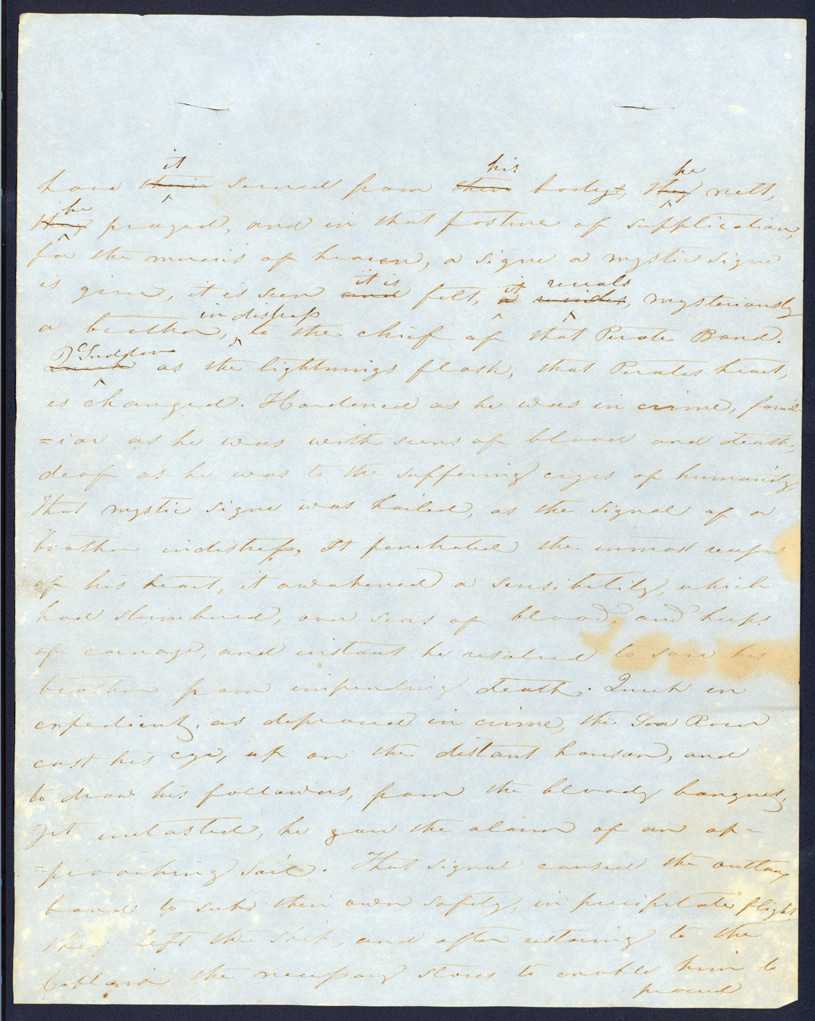 it his he
had their severed from their body, they nelt,
he
they prayed, and in that posture of supplication,
for the mercies of heaven, a signe a mystic signe
it is it recals
is given, it is seen and felt, a, mysteriously
in distress
a brother, to the chief of that Pirate Band.
Sudden
Quick as the lightnings flash, that Pirates heart,
is changed. Hardened as he was in crime, famil-
=iar as he was with scens of blood and death,
deaf as he was to the suffering cryes of humanity
that mystic signe was hailed, as the signal of a
brother indistress, It penetrated the inmost recesses
of his heart, it awakened a sensibility, which
had slumbered, over seas of blood, and heeps
of carnage, and instant he resolved to save his
brother from impending death. Quick in
expedients, as depraved in crime, the Sea Rover
cast his eye, up on the distant horison, and
to draw his followers, from the bloody banquet,
yet untasted, he gave the alarm of an ap-
=proaching sail. That signal caused the outlaw
band to seek their own safety, in precipitate flight
they left the ship, and after restoring to the
Captain the necessary stores to enable him to
proceed